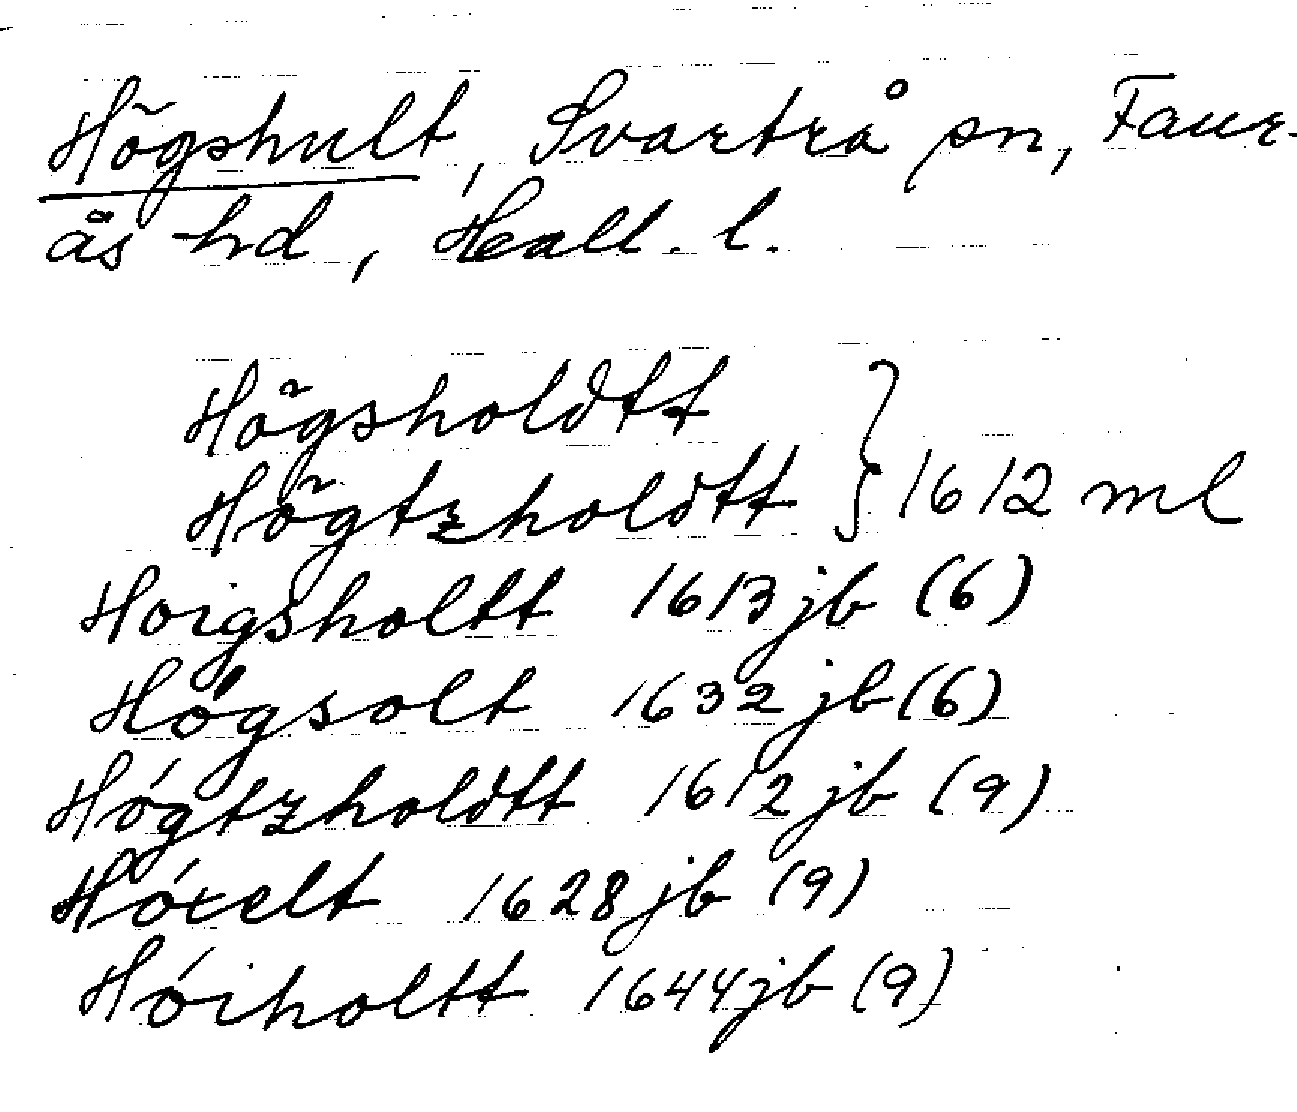 Högshult, Svartrå sn, Faur-
ås hd, Hall. l.
Högsholdtt
Högtzholdtt } 1612 ml
Hoigsholtt 1613 jb (6)
Högsolt 1632 jb (6)
Hógtzholdtt 1612 jb (9)
Hóxelt 1628 jb (9)
Hóiholtt 1644 jb (9)